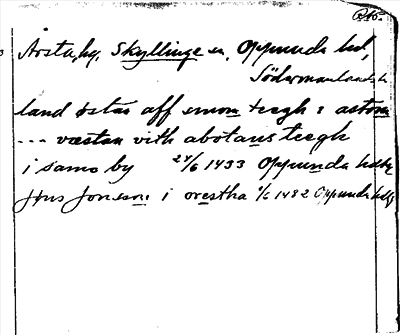 Årsta, by, Skyllinge sn, Oppunda hd,
Södermanlands l.
land östan aff smom teegh : astom
... væstan vith abotans teegh
i samo by 24/6 1433 Oppunda hdbr
Jöns Jonsson i orestha 1/6 1482 Oppunda hdbr